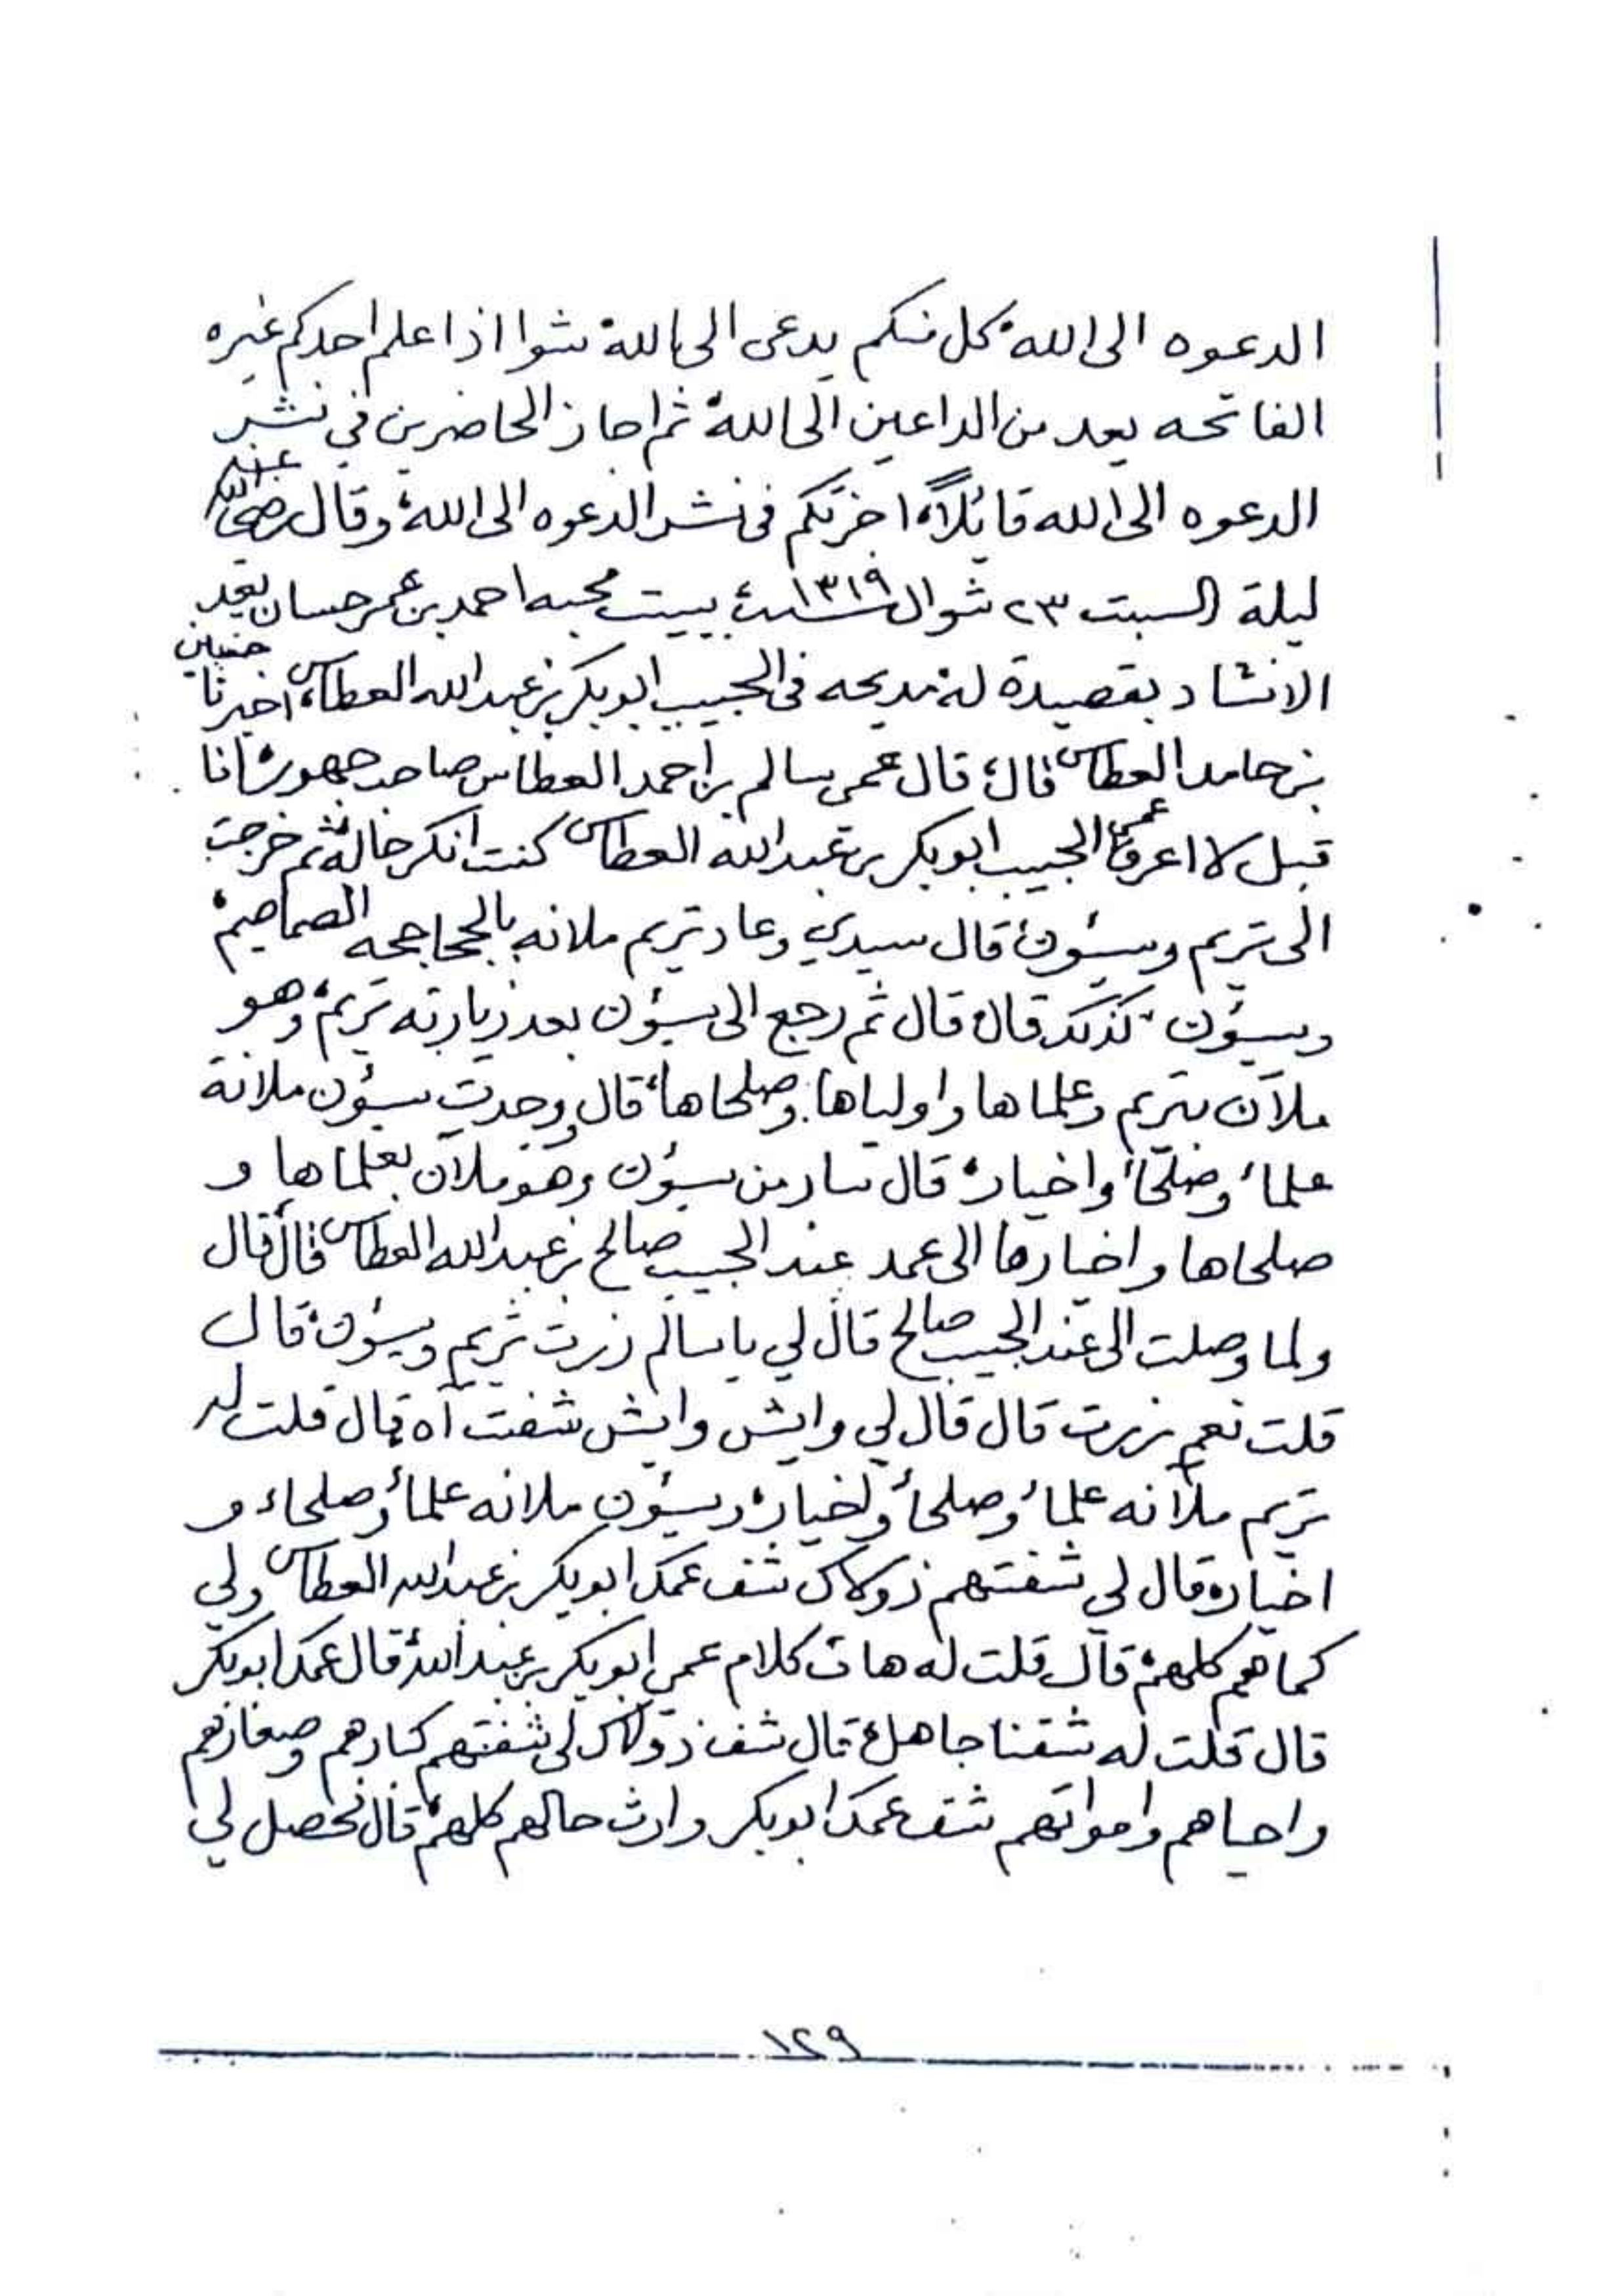 الدعوه الى الله، كل منكم يدعى الى الله شوا اذا علم احدكم غيره
الفاتحه يعد من الداعين الى الله، ثم اجاز الحاضرين في نشر
الدعوه الى الله قائلاً، اجزتكم في نشر الدعوه الى الله، وقال رضي الله عنه
ليلة السبت ٢٣ شوال سنة ١٣١٩ ببيت محبه احمد بن عمر حسان بعد
الانشاد بقصيدة له مديحه في الحبيب ابوبكر بن عبدالله العطاس، اخبرنا حسين
بن حامد العطاس قال، قال عمي سالم بن احمد العطاس صاحب جهور، انا
قبل لا اعرف عمي الحبيب ابوبكر بن عبدالله العطاس كنت انكر حاله، ثم خرجت
الى تريم وسيؤن، قال سيدي وعاد تريم ملانه بالجحاجحه الصماصيم،
وسيؤن كذلك، قال قال ثم رجع الى سيؤن بعد زيارته تريم، وهو
ملآن بتريم وعلماها واولياها وصلحاها، قال وجدت سيؤن ملانة
علماء وصلحاء واخيار، قال سار من سيؤن وهو ملآن بعلماها و
صلحاها واخيارها الى عمد عند الحبيب صالح بن عبدالله العطاس قال، قال
ولما وصلت الى عند الحبيب صالح قال لي يا سالم زرت تريم وسيؤن، قال
قلت نعم زرت قال قال لي وايش وايش شفت آه قال قلت له
تريم ملآنه علماء وصلحاء واخيار، وسيؤن ملانه علماء وصلحاء و
اخيار، قال لي شفتهم ذولاك شف عمك ابوبكر بن عبدالله العطاس ولي
كماهم كلهم، قال قلت له هات كلام عمي ابوبكر بن عبدالله، قال عمك ابوبكر
قال قلت له شفنا جاهل، قال شف ذولاك لى شفتهم كبارهم وصغارهم
واحياهم وامواتهم شف عمك ابوبكر وارث حالهم كلهم، قال فحصل لي
١٢٩